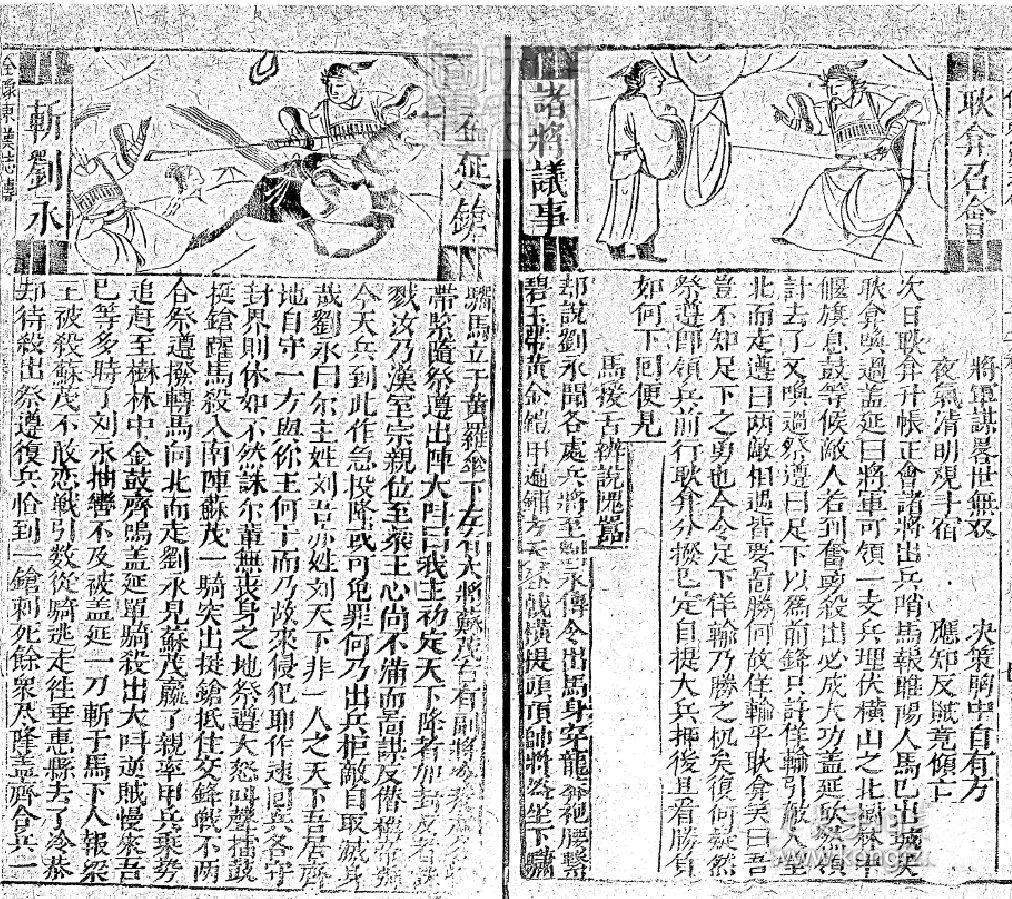 耿弇召會
諸將議事
將軍謀畧世無双
决策胸中自有方
夜氣清明观斗宿
應知反賊竟傾亡
次日耿弇升帳正會諸將出兵哨馬報睢陽人馬已出城矣
耿弇喚過盖延曰將軍可領一支兵理伏横山之北樹林中
偃旗息鼓等候敵人若到奮勇殺出必成大功盖延欣然領
計去了又喚過祭遵曰足下以為前鋒只許佯輸引敵人望
北而走遵曰兩敵相遇皆要啚勝何故佯輸乎耿弇笑曰吾
豈不知足下之勇也今令足下佯輸乃勝之机矣復何疑然
祭遵即領兵前行耿弇分撥已定自提大兵押後且看勝負
如何下回便見
馬援舌辨說隗嚣
却說劉永聞各處兵將至 永傳令出馬身穿龍奔袍腰繫
碧玉帶黃金鎧甲 戟横提頭頂帥將 坐下騸
延鎗
斬劉永
全像東漢志傳
驕馬立于黃羅傘下左有大將蘇茂右有副將
帶 隨祭遵出陣大呌曰我主初定天下降者加封反者
戮汝乃漢室宗親位至梁王心尚不滿而啚謀反僣
今天兵到此作急投降或可免罪何乃出兵柜敵自取滅身
哉劉永曰尔主姓刘吾亦姓刘天下非一人之天下吾居齊
地自守一方與你王何干而乃故來侵犯耶作速回兵各守
封界則休如不然誅尔輩無丧身之地祭遵大怒呌聲擂鼓
挺鎗躍馬殺入南陣蘇茂一騎突出挺鎗抵住交鋒戰不兩
合祭遵撥轉馬向北而走劉永見蘇茂贏了親率甲兵乘勢
追赶至樹林中金鼓齊鳴盖延單騎殺出大呌逆賊慢來吾
已等多時了刘永抽轡不及被盖延一刀斬于馬下人報梁
王被殺蘇茂不敢恋戰引数從騎逃走往垂惠縣去了冷恭
却待殺出祭遵復兵恰到一鎗刺死餘衆尽降盖 齊合兵一